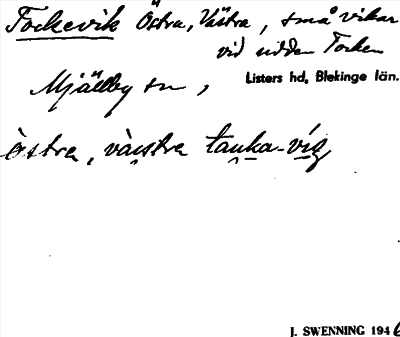 Torkevik Östra, Västra, små vikar
vid udden Torken
Mjällby sn,
Listers hd, Blekinge län.
östra, västra
J. SWENNING 1946